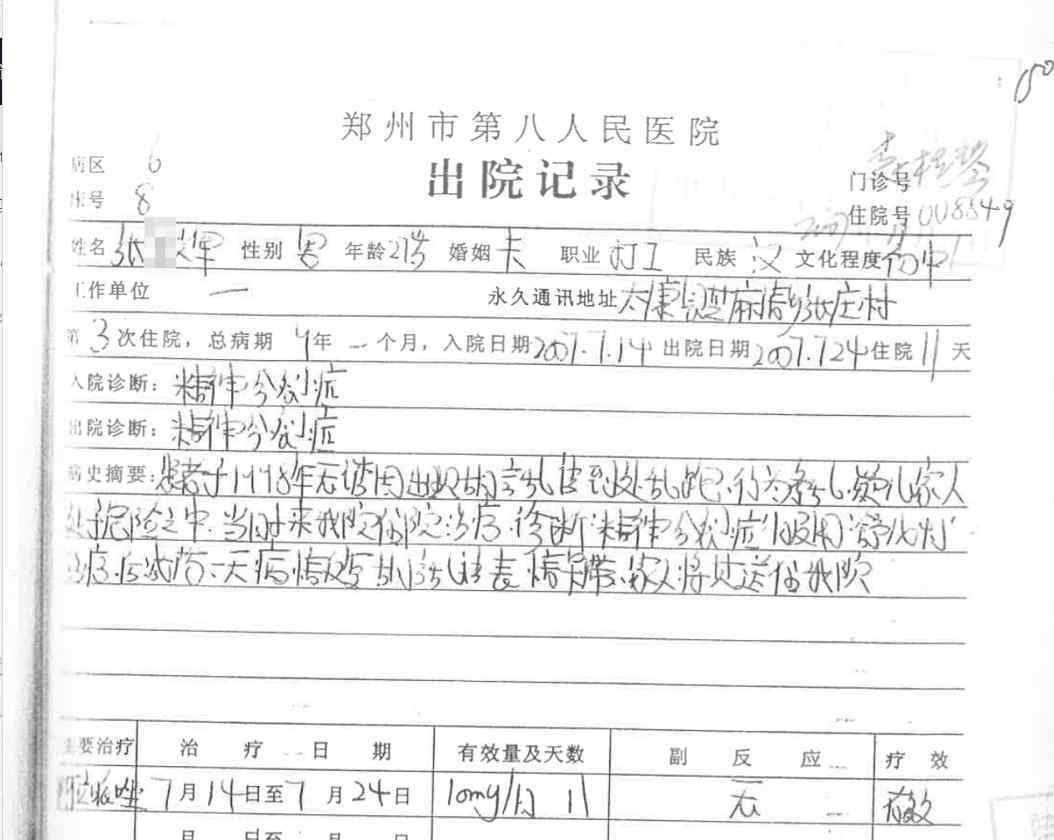 郑州市第八人民医院
出院记录
病区 6
床号 8
门诊号
住院号 008549
姓名 张 军 性别 男 年龄 27岁 婚姻 未 职业 打工 民族 汉 文化程度 初中
工作单位 一 永久通讯地址 太康县芝麻 乡张庄村
第 3 次住院，总病期 9 年 一 个月，入院日期 2007.7.14 出院日期 2007.7.24 住院 11 天
入院诊断：精神分裂症
出院诊断：精神分裂症
病史摘要：患者于1998年无诱因出现胡言乱语到处乱跑，行为紊乱，疑儿家人
处于危险之中，当时来我院住院治疗，诊断“精神分裂症”服用
治疗，后 药 病情 胡言乱语表情 家人将其送住我院
主要治疗 治疗日期 有效量及天数 副反应 疗效
7月14日至7月24日 10mg/日 11 无 有效
月 日至 月 日